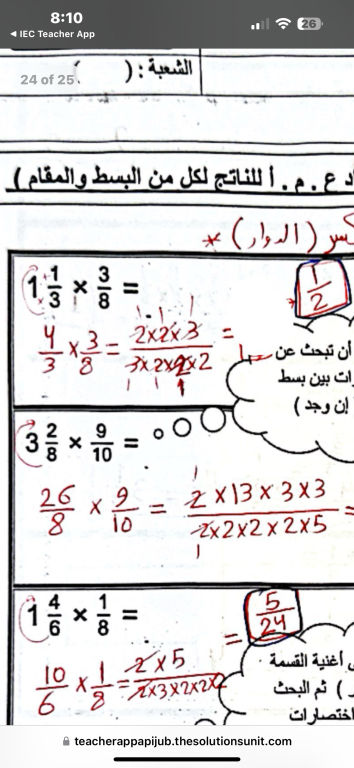 8:10
26
◀ IEC Teacher App
24 of 25
الشعبة : ( )
ع . م . أ للناتج لكل من البسط والمقام )
(الدوار) *
1 1/3 × 3/8 =
1/2
4/3 × 3/8 = 2×2×3 / 3×2×2×2 =
أن تبحث عن
ات بين بسط
إن وجد )
3 2/8 × 9/10 =
26/8 × 9/10 = 2×13×3×3 / 2×2×2×2×5 =
1 4/6 × 1/8 =
= 5/24
10/6 × 1/8 = 2×5 / 2×3×2×2×2
أغنية القسمة
) ثم البحث
اختصارات
teacherappapijub.thesolutionsunit.com